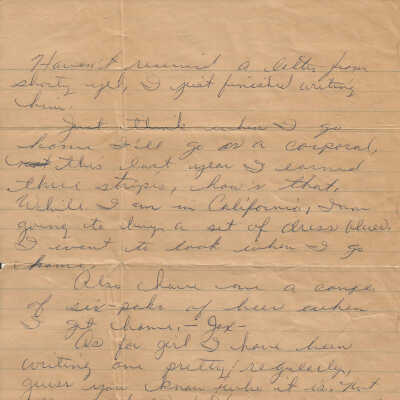 Haven't received a letter from
shorty yet, I just finished writing
him.
Just think when I go
home I'll go as a corporal,
this last year I earned
three stripes, how's that,
While I am in California, I am
going to buy a set of dress blues.
I want to look when I go
home.
Also have me a couple
of six-paks of beer when
I get home, -
As for girl I have been
writing one pretty regularly,
guess you know who it is. But